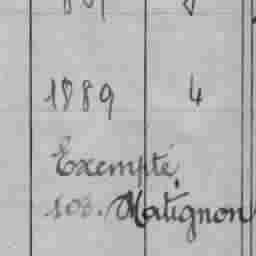 1889 4
Exempté
108. Matignon